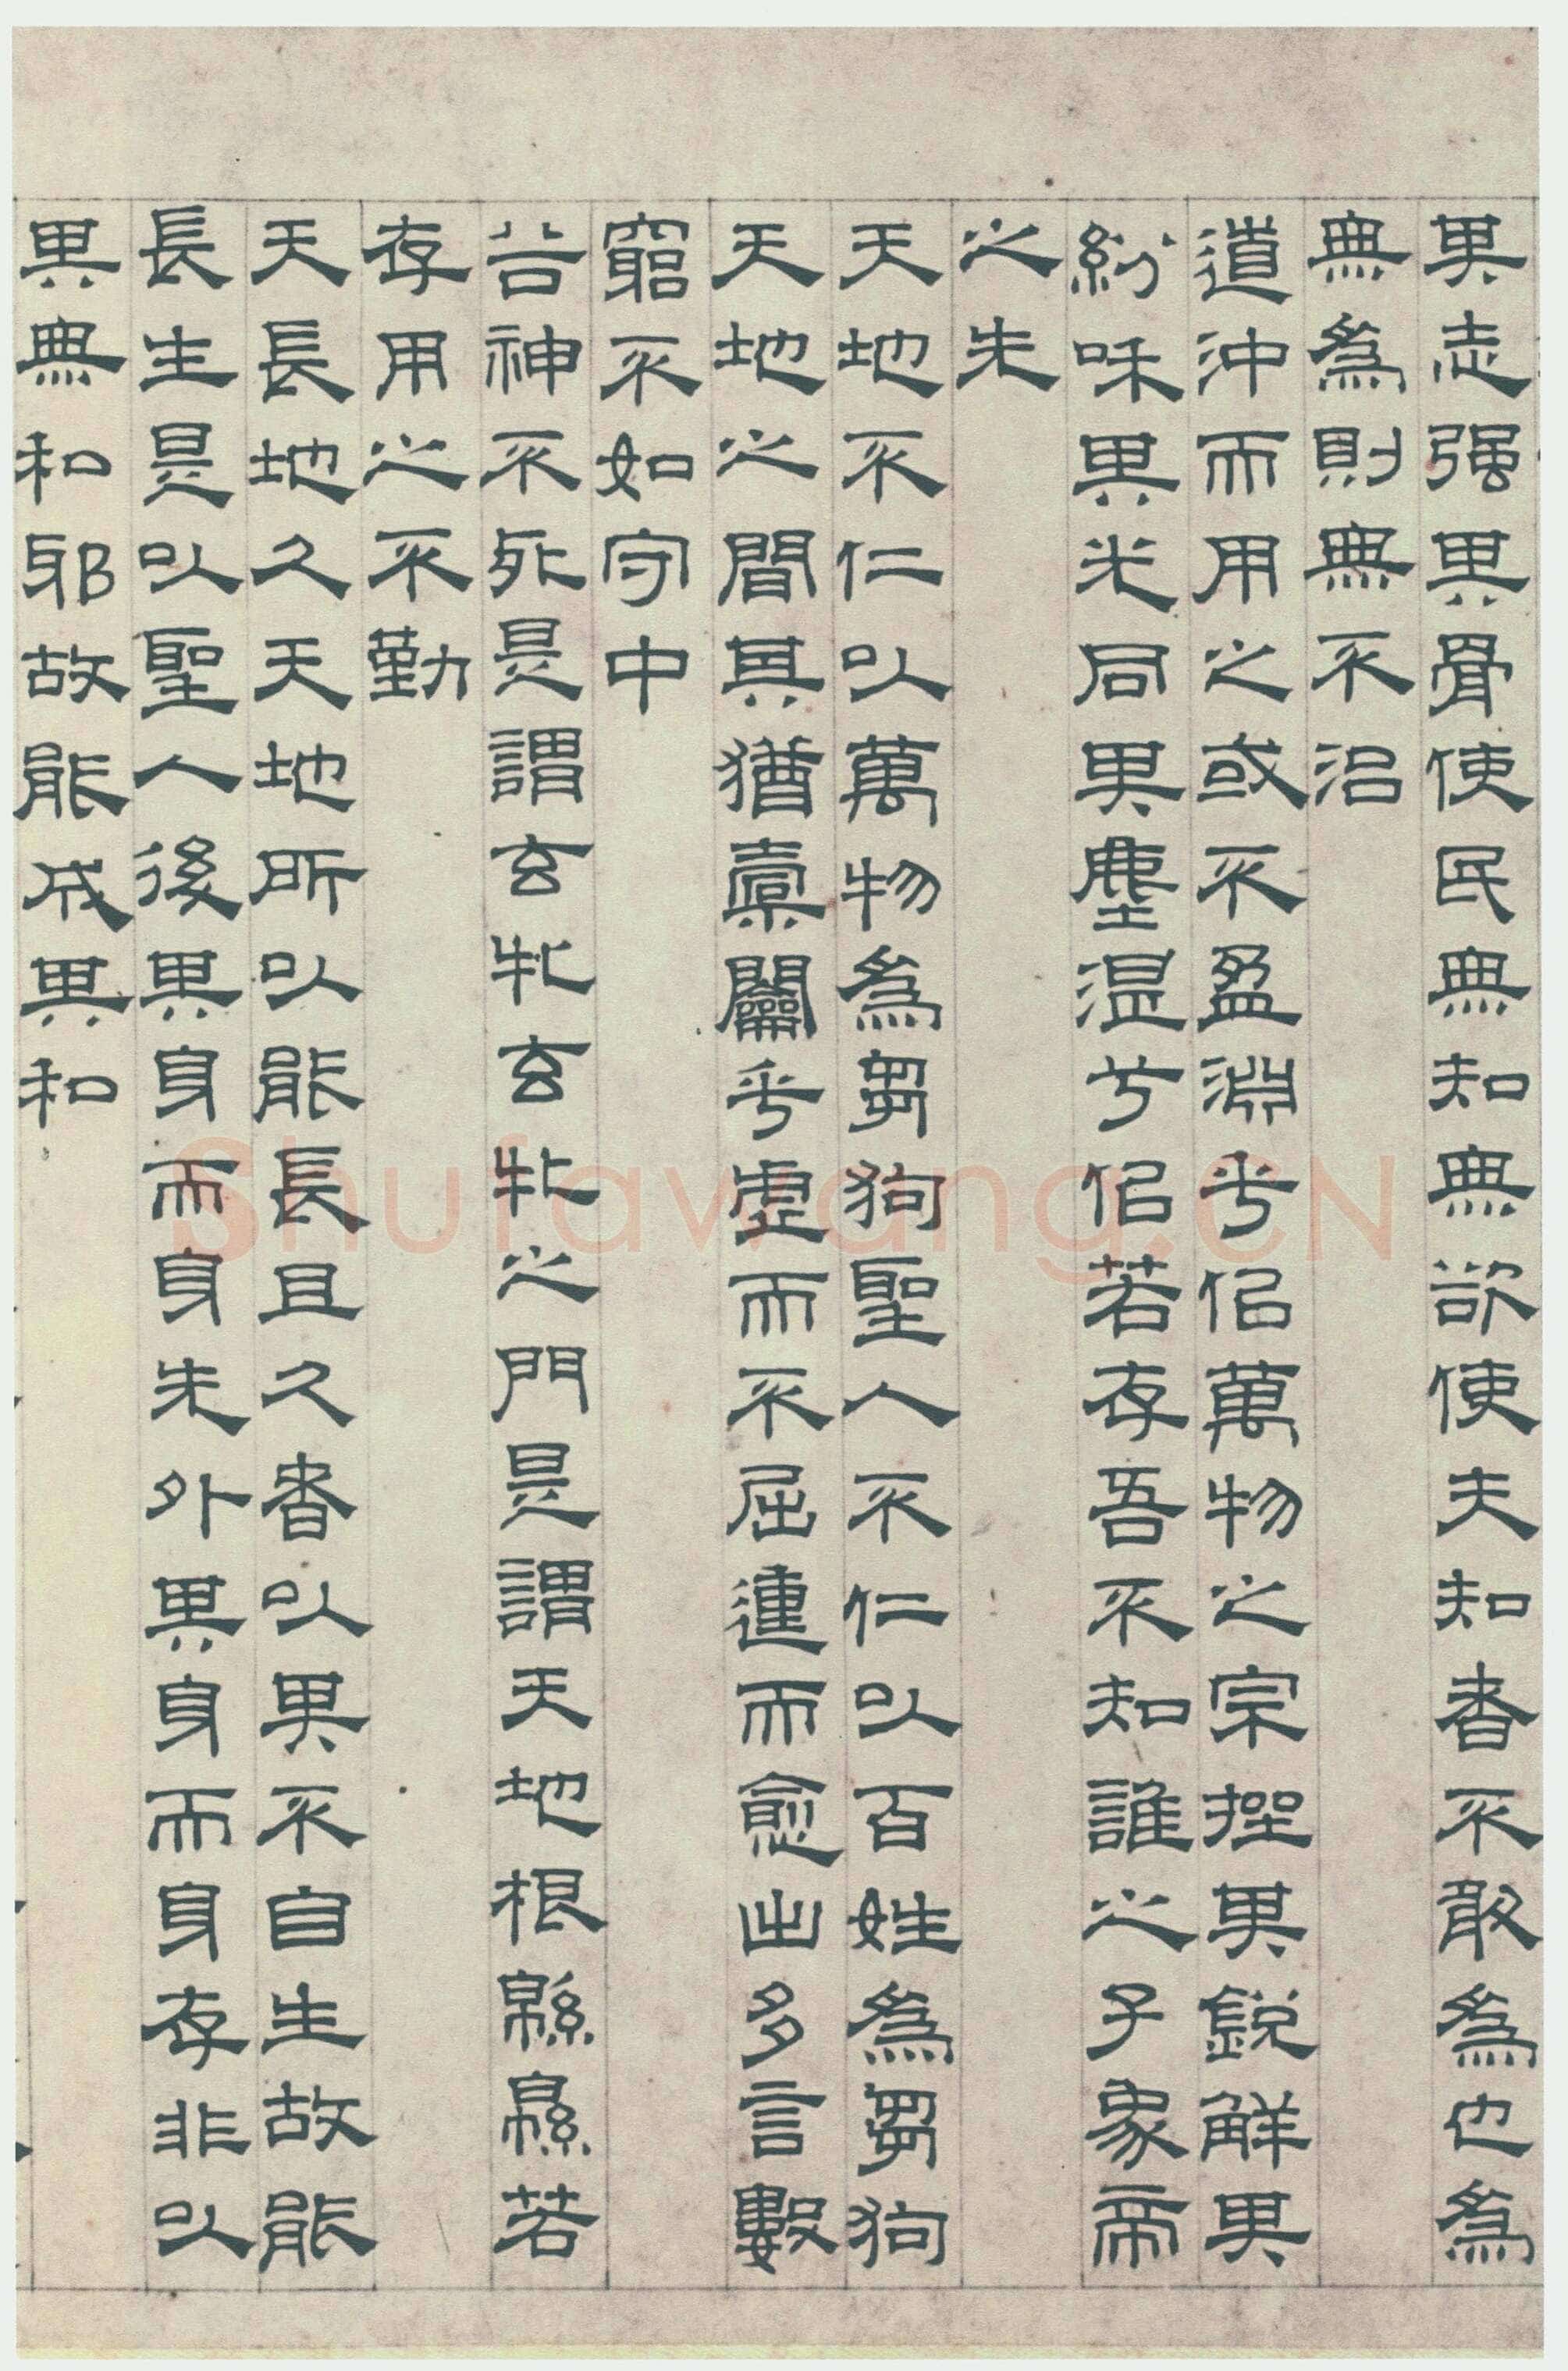 其志强其骨使民無知無欲使夫知者不敢為也為
無為則無不治
道沖而用之或不盈淵乎似萬物之宗挫其銳解其
紛和其光同其塵湛兮似若存吾不知誰之子象帝
之先
天地不仁以萬物為芻狗聖人不仁以百姓為芻狗
天地之間其猶橐籥乎虛而不屈動而愈出多言數
窮不如守中
谷神不死是謂玄牝玄牝之門是謂天地根綿綿若
存用之不勤
天長地久天地所以能長且久者以其不自生故能
長生是以聖人後其身而身先外其身而身存非以
其無私邪故能成其私
Shufawang.CN